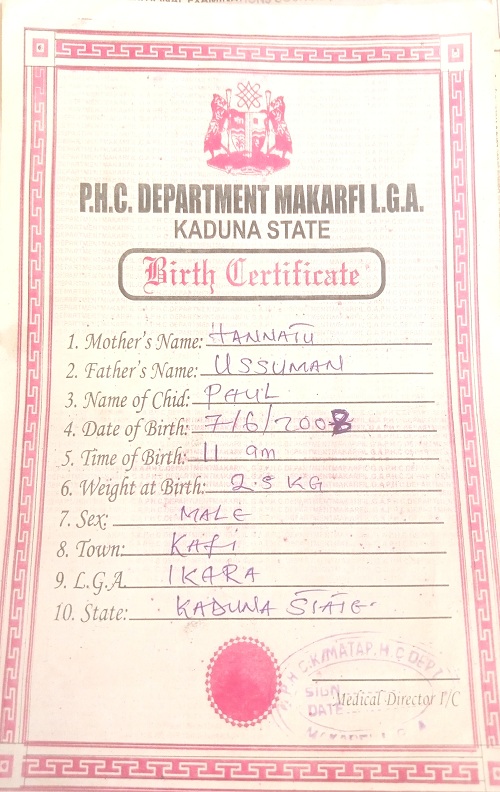 P.H.C. DEPARTMENT MAKARFI L.G.A.
KADUNA STATE
Birth Certificate
1. Mother's Name: HANNATU
2. Father's Name: USSUMAN
3. Name of Chid: PAUL
4. Date of Birth: 7/6/2008
5. Time of Birth: 11 am
6. Weight at Birth: 2.5 KG
7. Sex: MALE
8. Town: KAFI
9. L.G.A. IKARA
10. State: KADUNA STATE.
P.H.C. K/MATAP. H. C DEPT
SIGN
DATE
Medical Director I/C
MAKARFI L.G.A